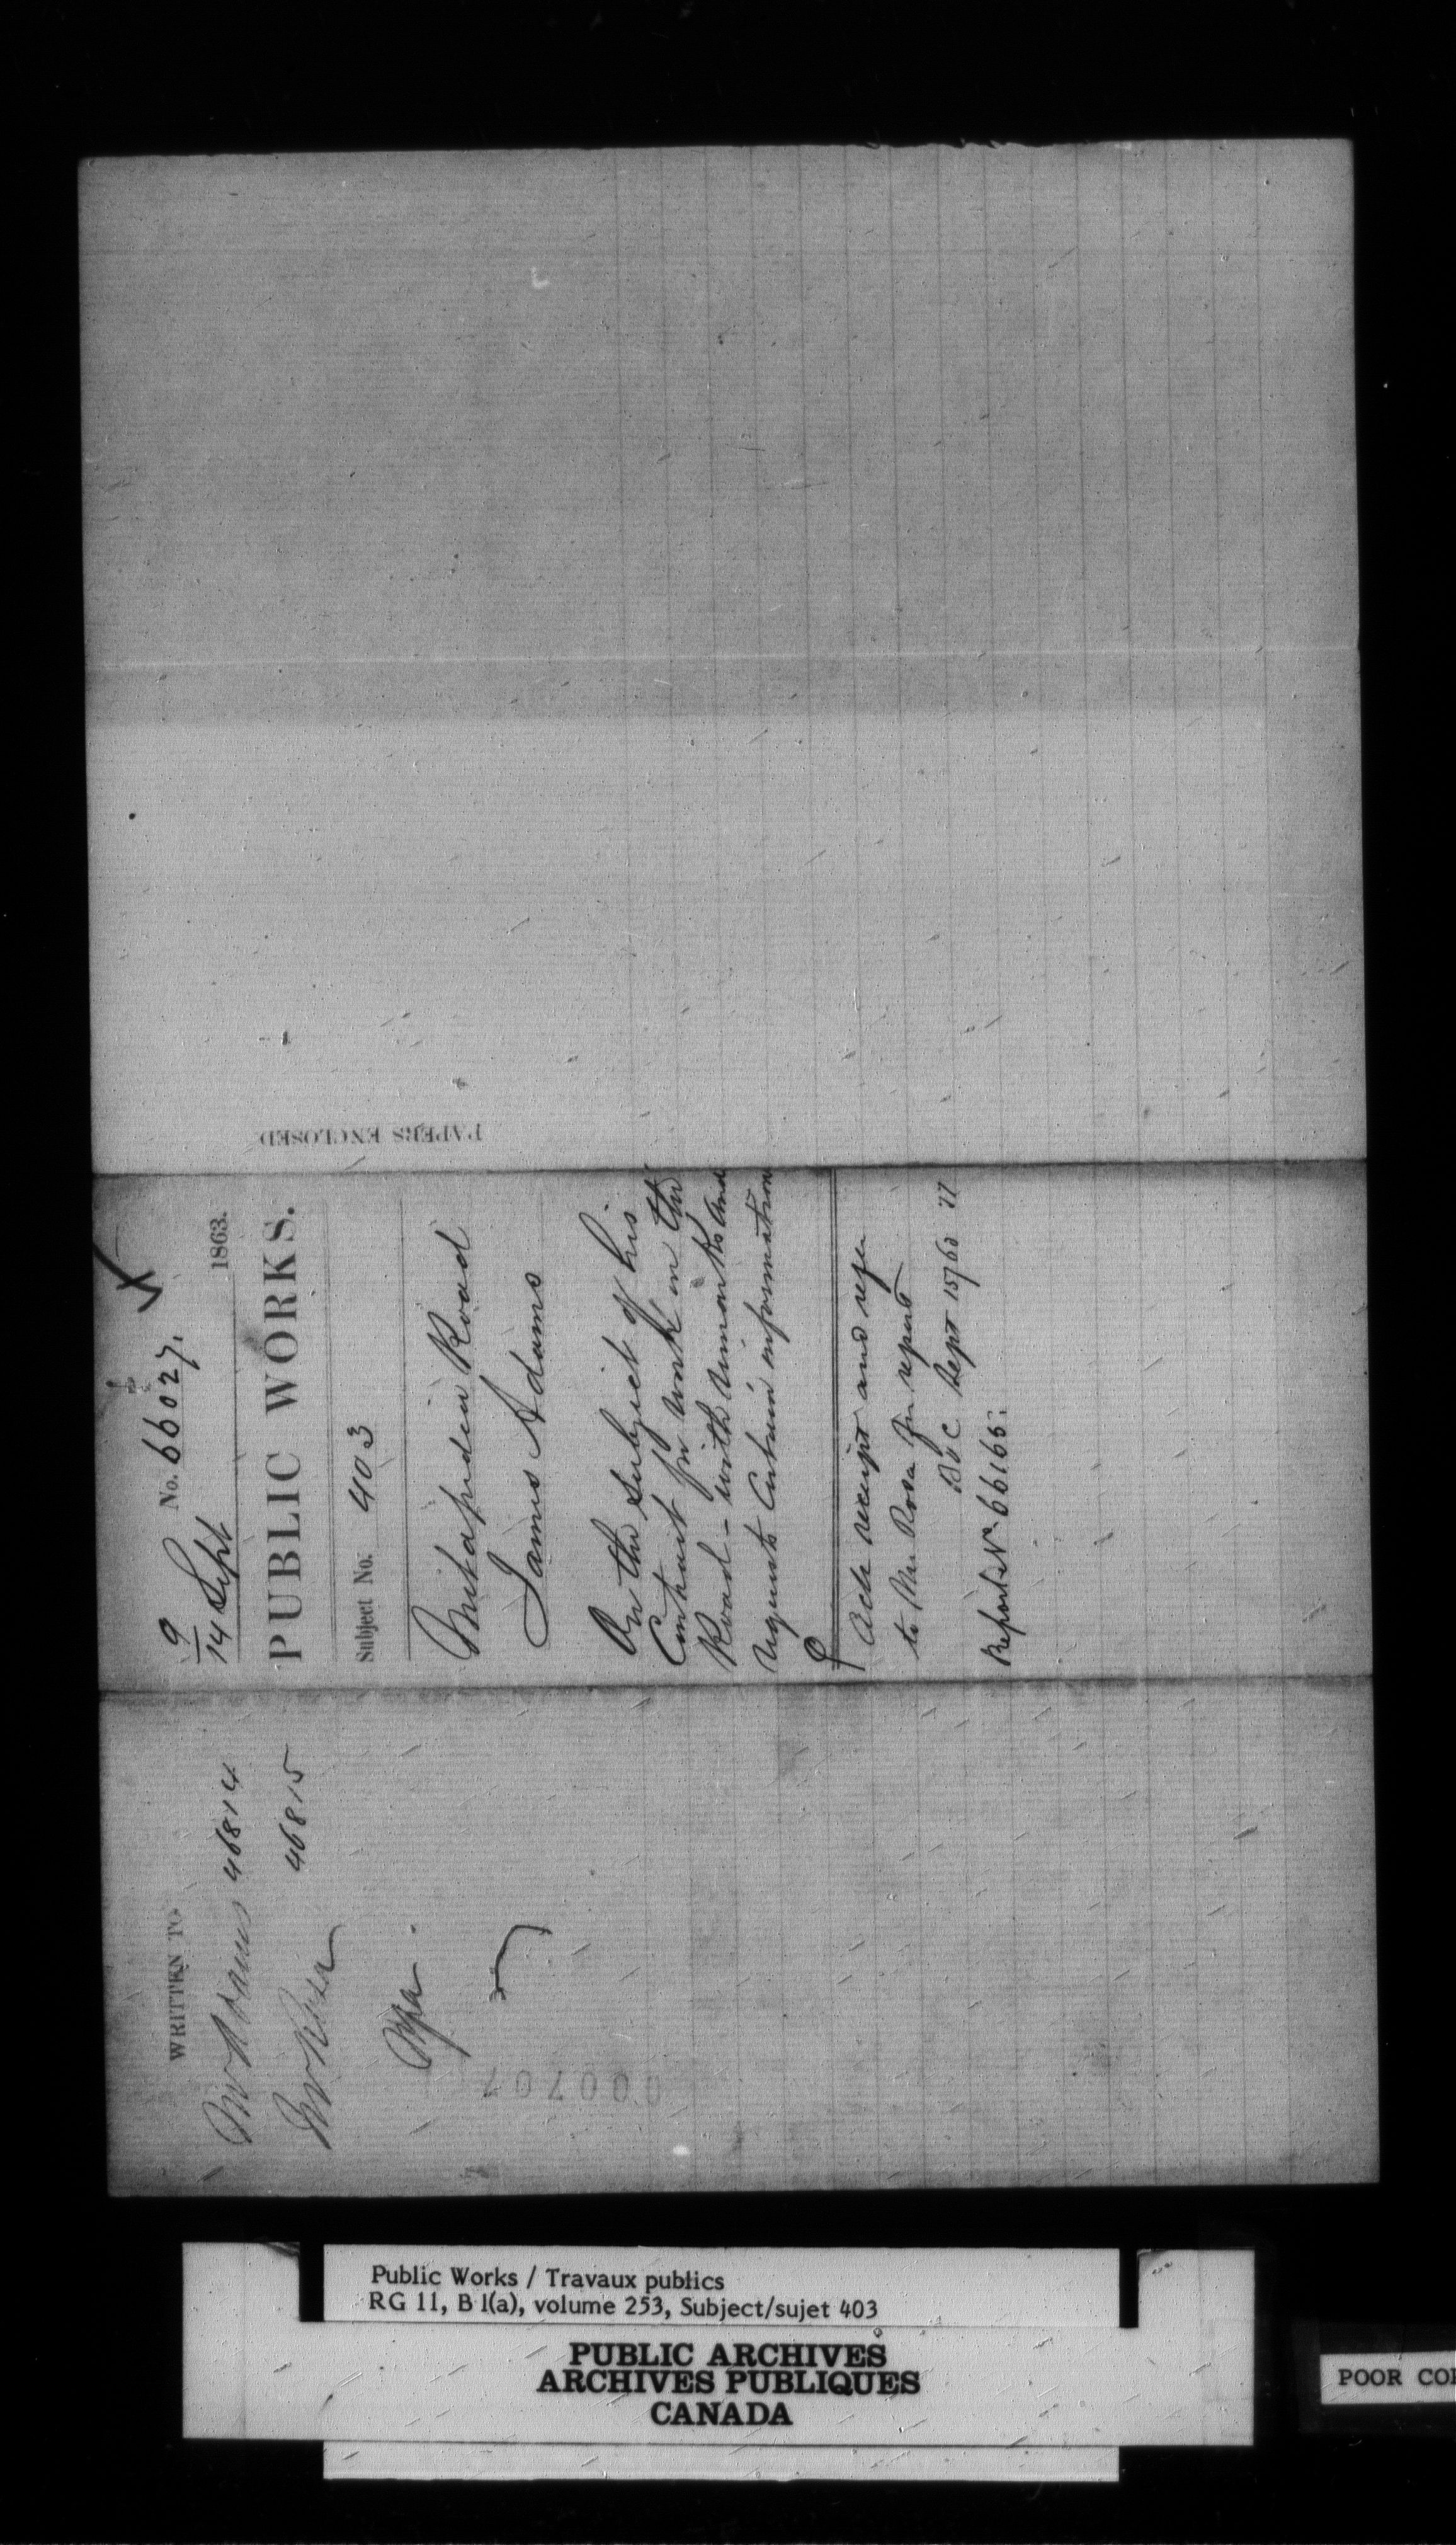 WRITTEN TO
Mr Adams 46814
Mr Rosa 46815
000707
9
14 Sept
No. 66027.
1863.
PUBLIC WORKS.
Subject No. 403
Metapedia Road
James Adams
On the subject of his
Contract for work on the
Road - with remarks and
requests Certain information
Ack receipt and refer
to Mr Rosa for report
Sept 15/63 77
Report No. 66165.
PAPERS ENCLOSED
Public Works / Travaux publics
RG 11, B 1(a), volume 253, Subject/sujet 403
PUBLIC ARCHIVES
ARCHIVES PUBLIQUES
CANADA
POOR COP